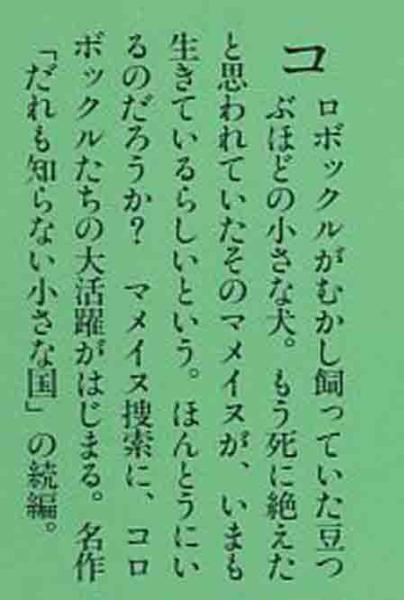 コロボックルがむかし飼っていた豆つ
ぶほどの小さな犬。もう死に絶えた
と思われていたそのマメイヌが、いまも
生きているらしいという。ほんとうにい
るのだろうか？　マメイヌ捜索に、コロ
ボックルたちの大活躍がはじまる。名作
「だれも知らない小さな国」の続編。